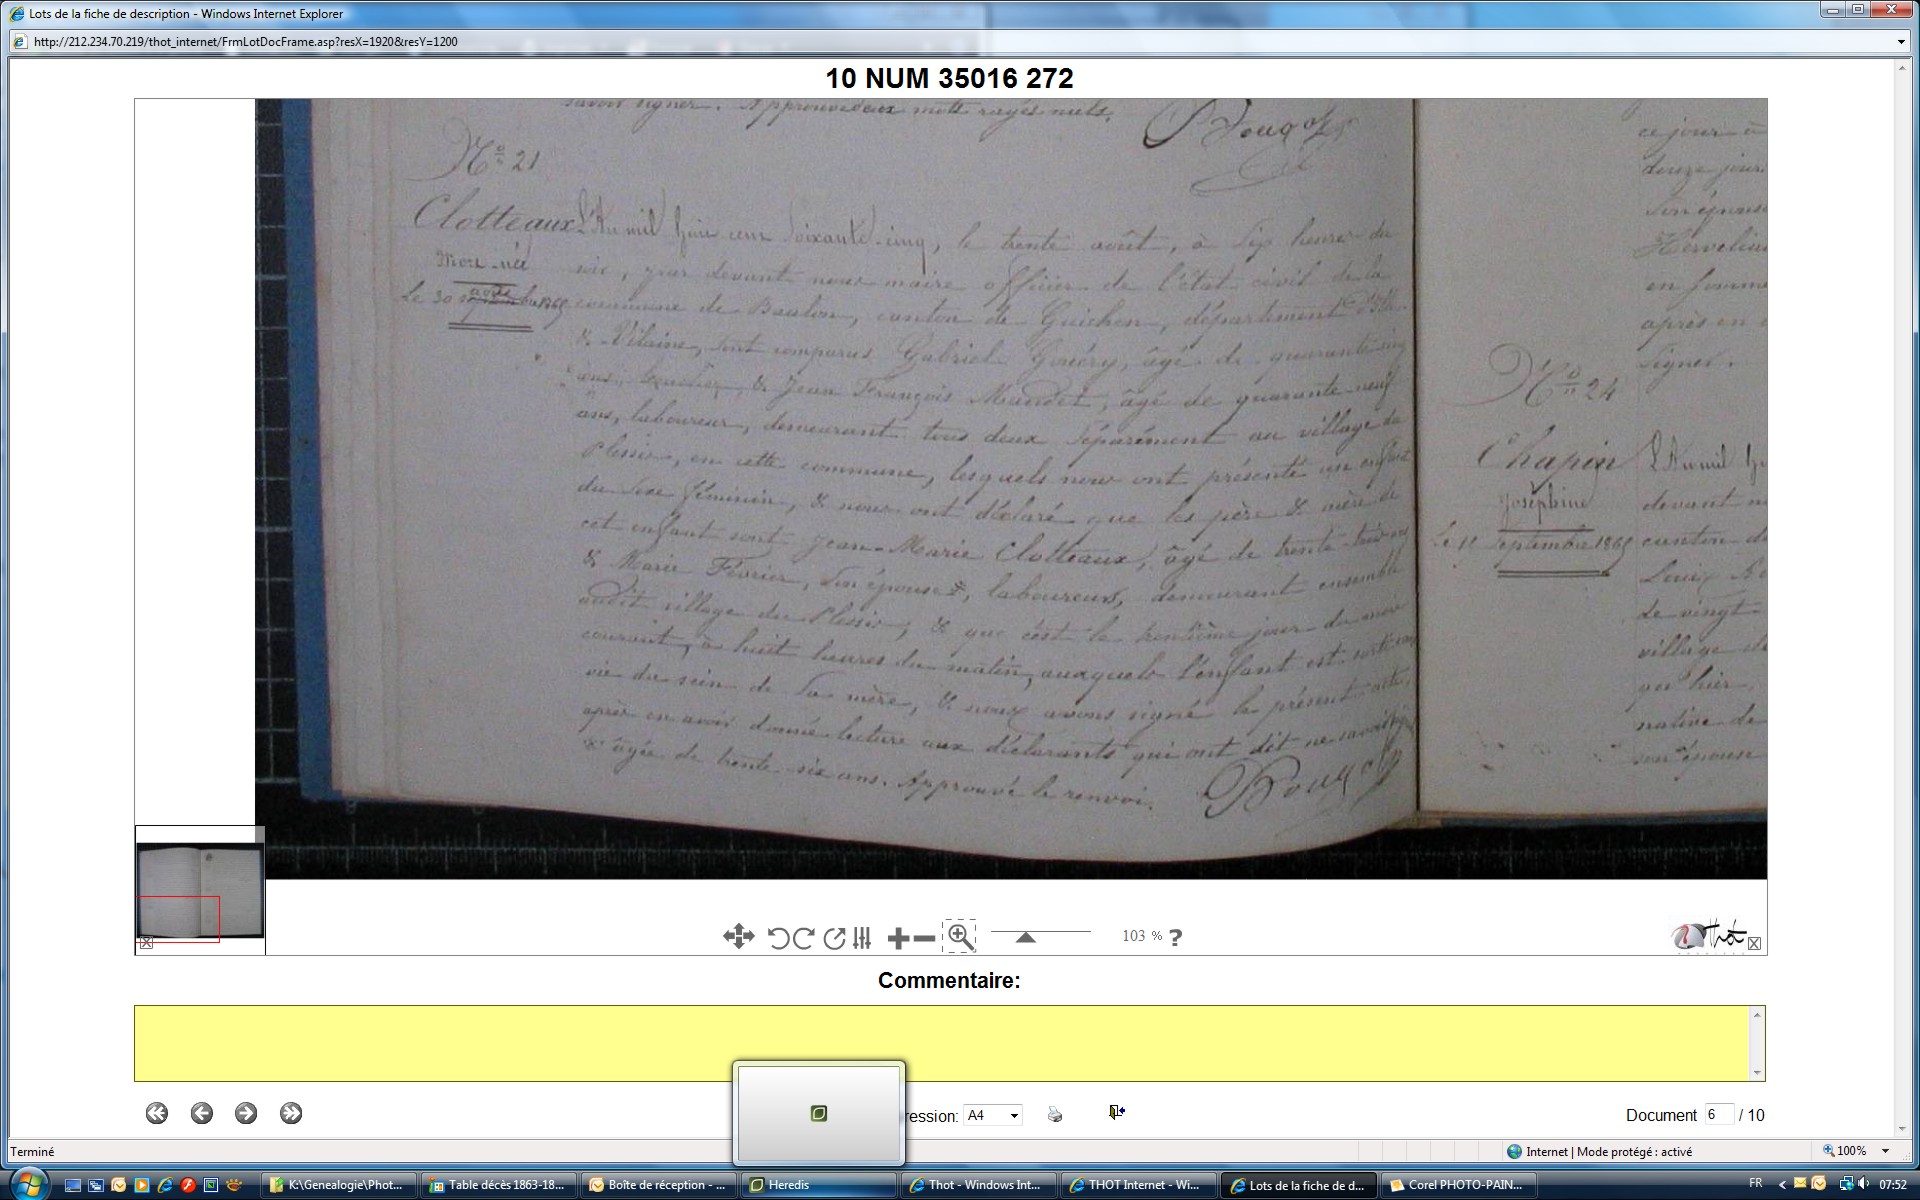 Lots de la fiche de description - Windows Internet Explorer
http://212.234.70.219/thot_internet/FrmLotDocFrame.asp?resX=1920&resY=1200
10 NUM 35016 272
savoir signer. Approuvé deux mots rayés nuls.
N° 21
Clotteaux
Mort-né
Le 30 août 1865
L'An mil huit cent soixante-cinq, le trente août, à six heures du
soir, par devant nous maire officier de l'état civil de la
commune de Baulon, canton de Guichen, département d'Ille
& Vilaine, sont comparus Gabriel âgé de quarante-cinq
ans, & Jean François âgé de quarante-neuf
ans, laboureur, demeurant tous deux séparément au village du
Plessix, en cette commune, lesquels nous ont présenté un enfant
du sexe féminin, & nous ont déclaré que les père & mère de
cet enfant sont Jean-Marie Clotteaux, âgé de trente-trois ans
& Marie Février, son épouse, laboureurs, demeurant ensemble
audit village du Plessix, & que c'est le trentième jour du mois
courant, à huit heures du matin, auxquels l'enfant est sorti sans
vie du sein de sa mère, & nous avons signé le présent acte,
après en avoir donné lecture aux déclarants qui ont dit ne savoir
âgée de trente-six ans. Approuvé le renvoi.
ce jour à
douze jours
son épouse
en
après en
signer.
N° 24
Chapin
Joséphine
Le 11 septembre 1865
L'An mil
devant
canton de
de vingt
village de
qu'hier,
native de
son épouse
103 % ?
Thot
Commentaire:
ression: A4
Document 6 / 10
Terminé
Internet | Mode protégé : activé
100%
K:\Genealogie\Phot...
Table décès 1863-18...
Boîte de réception - ...
Heredis
Thot - Windows Int...
THOT Internet - Wi...
Lots de la fiche de d...
Corel PHOTO-PAIN...
FR
07:52